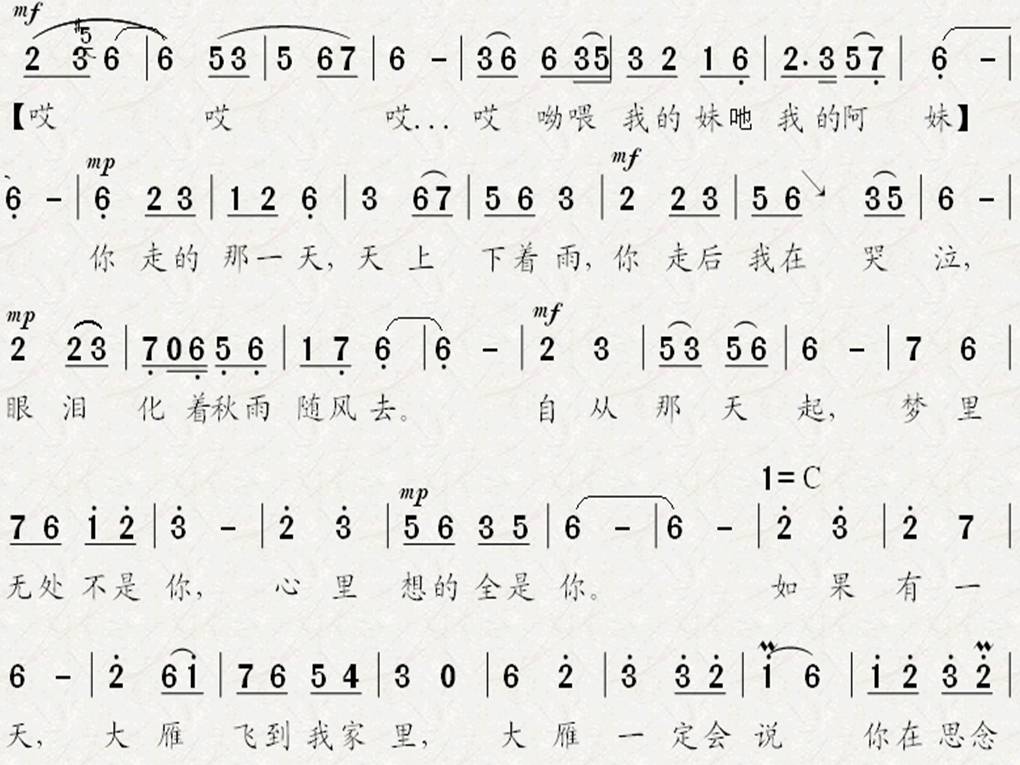 mf
#5
2 3 6 | 6 53 | 5 67 | 6 - | 36 6 35 | 3 2 1 6 | 2·3 57 | 6 -
【哎 哎 哎...哎 呦喂 我的妹吔 我的阿 妹】
mp mf
6 - | 6 2 3 | 1 2 6 | 3 67 | 5 6 3 | 2 2 3 | 5 6 ↘ 35 | 6 - |
你 走的 那一天,天 上 下着雨,你 走后 我在 哭 泣,
mp mf
2 23 | 7 06 5 6 | 1 7 6 | 6 - | 2 3 | 53 56 | 6 - | 7 6 |
眼 泪 化 着秋雨 随风去。 自 从 那 天 起, 梦 里
mp 1=C
7 6 1 2 | 3 - | 2 3 | 5 6 3 5 | 6 - | 6 - | 2 3 | 2 7 |
无处 不是 你, 心 里 想的 全是 你。 如 果 有 一
6 - | 2 61 | 7 6 5 4 | 3 0 | 6 2 | 3 3 2 | 1 6 | 1 2 3 2 |
天, 大 雁 飞到 我家 里, 大 雁 一 定会 说 你在 思念